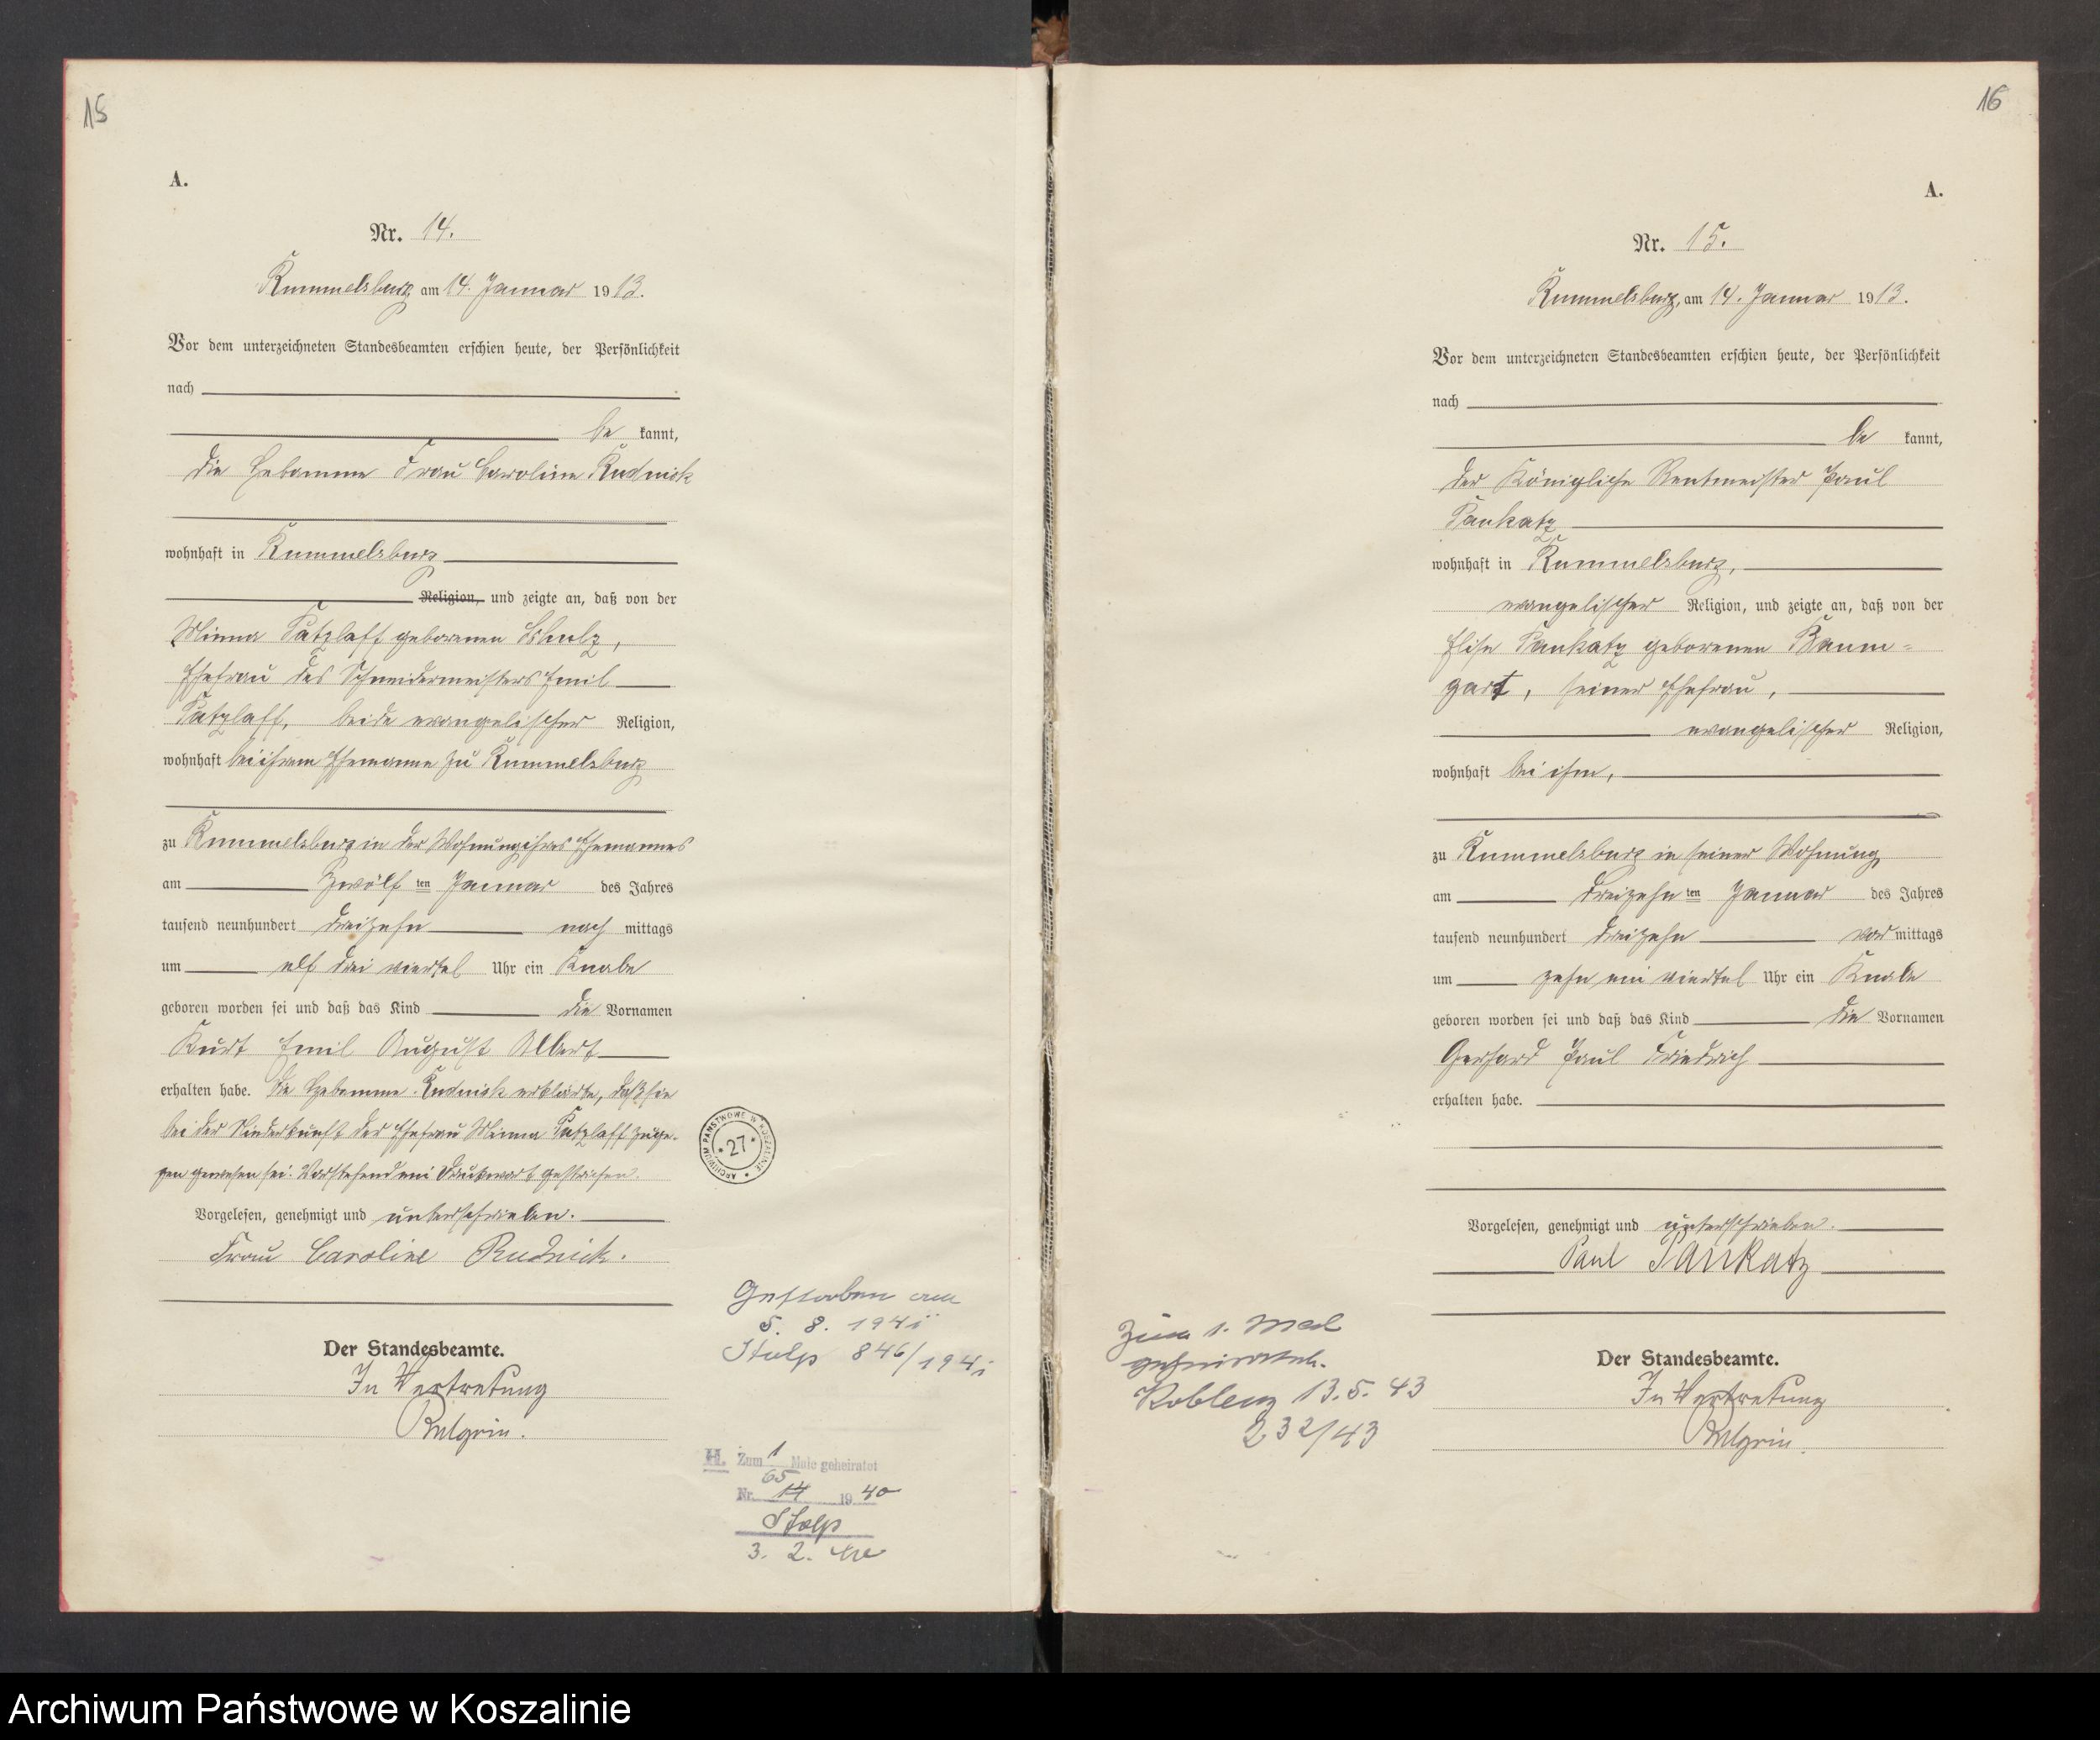 15
A.
Nr. 14.
Rummelsburg am 14. Januar 1913.
Vor dem unterzeichneten Standesbeamten erschien heute, der Persönlichkeit
nach
be kannt,
die Hebamme Frau Caroline Rudnick
wohnhaft in Rummelsburg
Religion, und zeigte an, daß von der
Minna Patzlaff geborenen Schulz,
Ehefrau des Schneidermeisters Emil
Patzlaff, beide evangelischer Religion,
wohnhaft bei ihrem Ehemanne zu Rummelsburg
zu Rummelsburg in der Wohnung ihres Ehemannes
am zwölf ten Januar des Jahres
tausend neunhundert dreizehn nach mittags
um elf drei viertel Uhr ein Knabe
geboren worden sei und daß das Kind die Vornamen
Kurt Emil August Albert
erhalten habe. Die Hebamme Rudnick erklärte, daß sie
bei der Niederkunft der Ehefrau Minna Patzlaff zuge-
gen gewesen sei. Vorstehend ein Druckwort gestrichen.
Vorgelesen, genehmigt und unterschrieben.
Frau Caroline Rudnick.
Der Standesbeamte.
In Vertretung
ARCHIWUM PAŃSTWOWE W KOSZALINIE
27
Gestorben am
5. 8. 1941
Stolp 846/1941
H. Zum 1 Male geheiratet
65
Nr. 14 1940
Stolp
3. 2.
16
A.
Nr. 15.
Rummelsburg, am 14. Januar 1913.
Vor dem unterzeichneten Standesbeamten erschien heute, der Persönlichkeit
nach
be kannt,
der Königliche Rentmeister Paul
Pankatz
wohnhaft in Rummelsburg,
evangelischer Religion, und zeigte an, daß von der
Elise Pankatz geborenen Baum=
gart, seiner Ehefrau,
evangelischer Religion,
wohnhaft bei ihm,
zu Rummelsburg in seiner Wohnung
am dreizehn ten Januar des Jahres
tausend neunhundert dreizehn vor mittags
um zehn ein viertel Uhr ein Knabe
geboren worden sei und daß das Kind die Vornamen
Gerhard Paul Friedrich
erhalten habe.
Vorgelesen, genehmigt und unterschrieben.
Paul Pankatz
Der Standesbeamte.
In Vertretung
Zum 1. Mal
geheiratet.
Koblenz 13.5.43
232/43
Archiwum Państwowe w Koszalinie